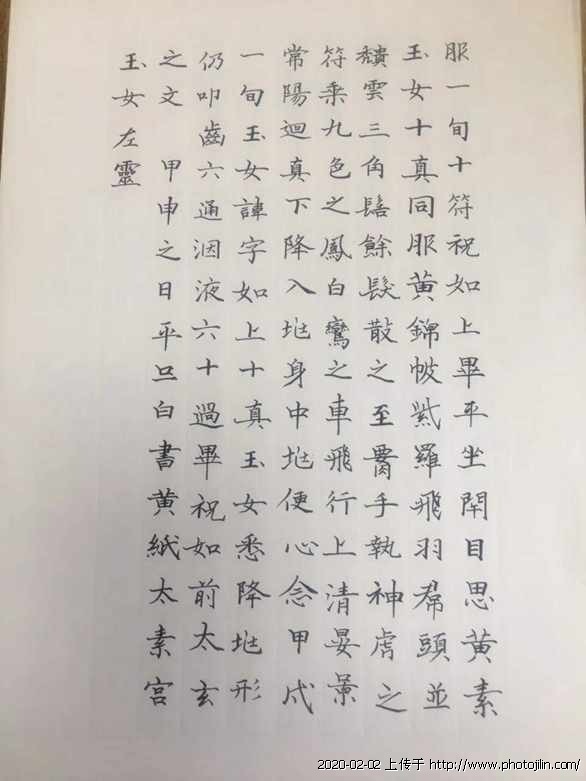 服一旬十符祝如上畢平坐閇目思黄素
玉女十真同服黄錦帔紫羅飛羽帬頭並
穨雲三角髻餘髮散之至腰手執神虎之
符乗九色之鳳白鸞之車飛行上清晏景
常陽迴真下降入兆身中兆便心念甲戌
一旬玉女諱字如上十真玉女悉降兆形
仍叩齒六通洇液六十過畢祝如前太玄
之文 甲申之日平旦白書黄紙太素宮
玉女左靈
2020-02-02 上传于 http://www.photojilin.com